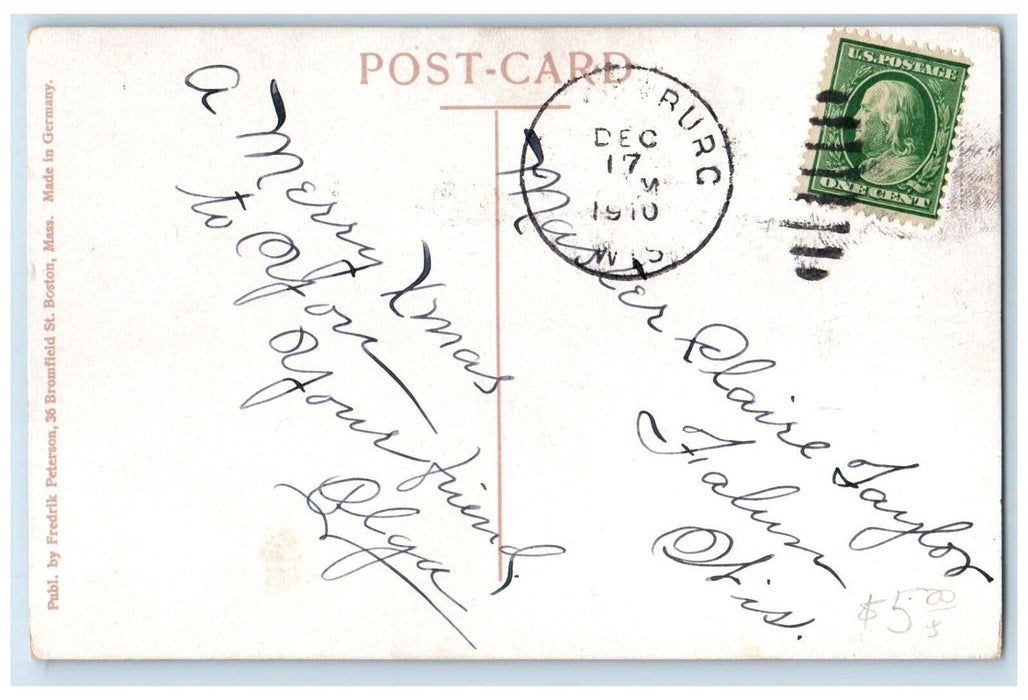 POST-CARD
Publ. by Fredrik Peterson, 36 Bromfield St. Boston, Mass. Made in Germany.
A Merry Xmas
to You
Your friend.
Olga
BURG
DEC
17
M
1910
WIS
U.S. POSTAGE
ONE CENT
Master Claire Taylor
Falun
Wis.
$5.00